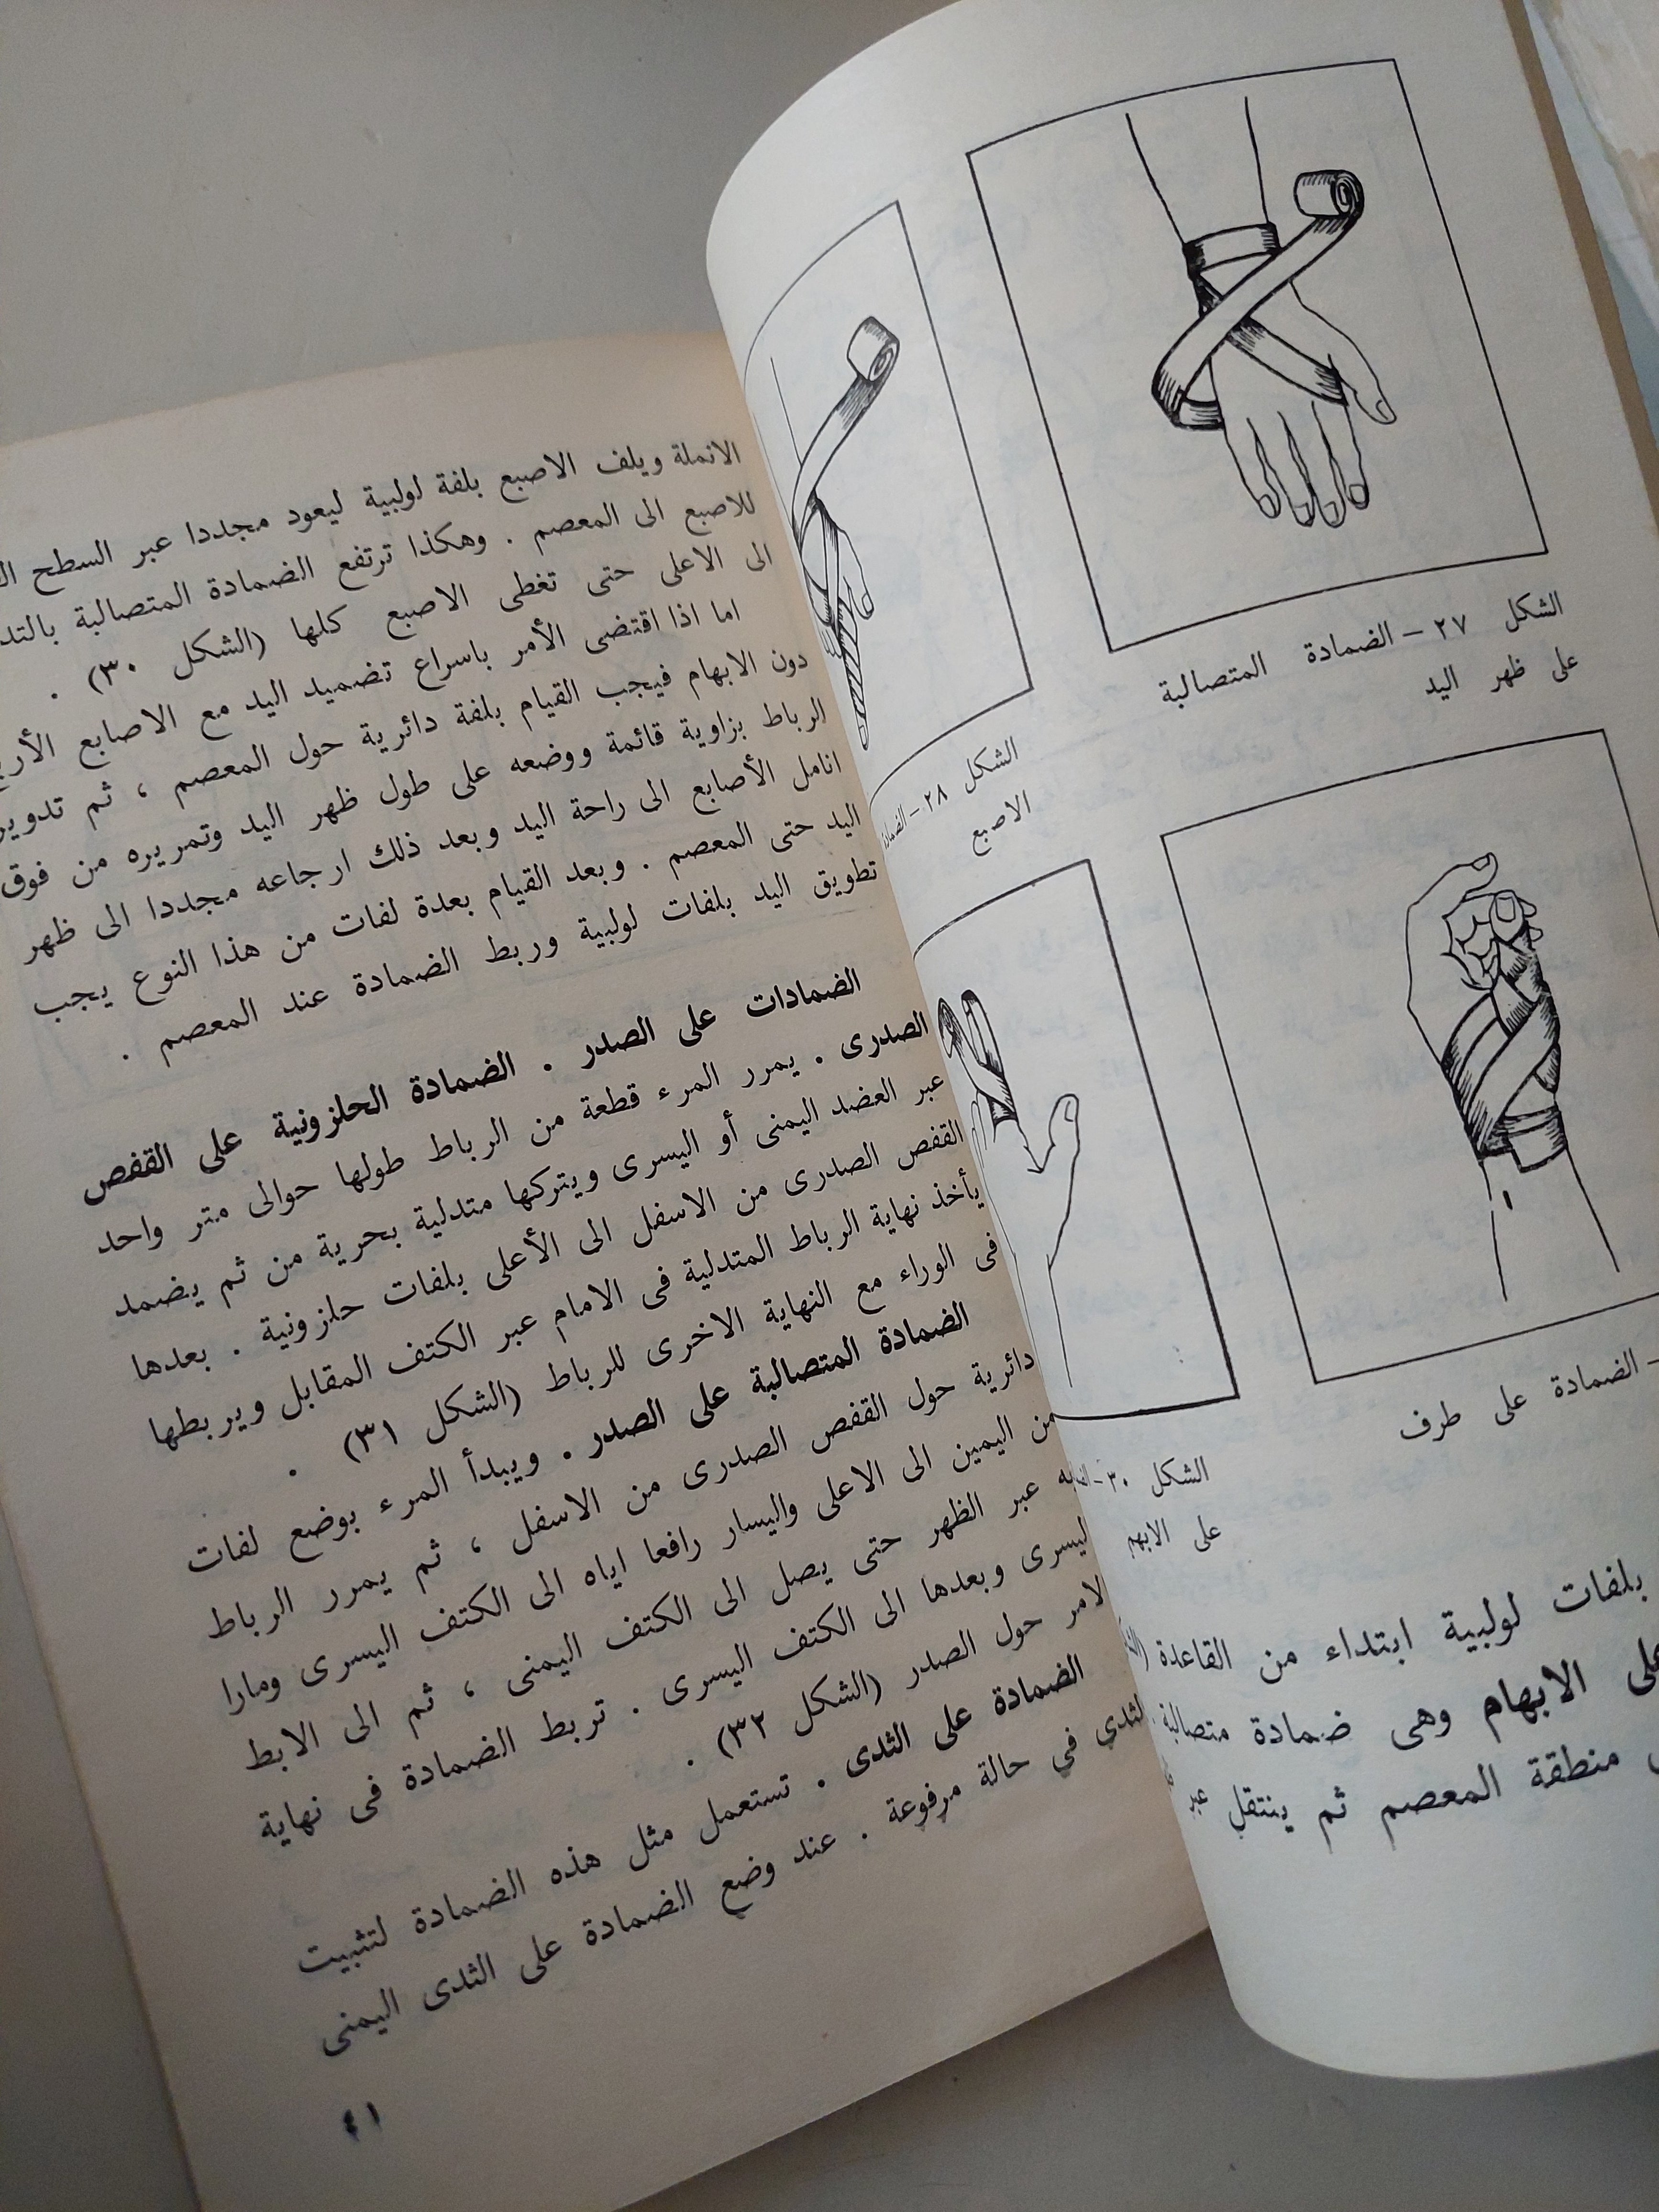 الشكل ٢٧ – الضمادة المتصالبة
على ظهر اليد
الشكل ٢٨ –
الاصبع
– الضمادة على طرف
الشكل ٣٠ –
على الابهم
بلفات لولبية ابتداء من القاعدة
الابهام وهى ضمادة متصالبة
منطقة المعصم ثم ينتقل عبر
الانملة ويلف الاصبع بلفة لولبية ليعود مجددا عبر السطح
للاصبع الى المعصم . وهكذا ترتفع الضمادة المتصالبة
الى الاعلى حتى تغطى الاصبع كلها (الشكل ٣٠) .
اما اذا اقتضى الأمر باسراع تضميد اليد مع الاصابع
دون الابهام فيجب القيام بلفة دائرية حول المعصم ، ثم تدوير
الرباط بزاوية قائمة ووضعه على طول ظهر اليد وتمريره من فوق
انامل الأصابع الى راحة اليد وبعد ذلك ارجاعه مجددا الى ظهر
اليد حتى المعصم . وبعد القيام بعدة لفات من هذا النوع يجب
تطويق اليد بلفات لولبية وربط الضمادة عند المعصم .
الضمادات على الصدر . الضمادة الحلزونية على القفص
الصدرى . يمرر المرء قطعة من الرباط طولها حوالى متر واحد
عبر العضد اليمنى أو اليسرى ويتركها متدلية بحرية من ثم يضمد
القفص الصدرى من الاسفل الى الأعلى بلفات حلزونية . بعدها
يأخذ نهاية الرباط المتدلية فى الامام عبر الكتف المقابل ويربطها
فى الوراء مع النهاية الاخرى للرباط (الشكل ٣١) .
الضمادة المتصالبة على الصدر . ويبدأ المرء بوضع لفات
دائرية حول القفص الصدرى من الاسفل ، ثم يمرر الرباط
من اليمين الى الاعلى واليسار رافعا اياه الى الكتف اليسرى ومارا
به عبر الظهر حتى يصل الى الكتف اليمنى ، ثم الى الابط
اليسرى وبعدها الى الكتف اليسرى . تربط الضمادة فى نهاية
الامر حول الصدر (الشكل ٣٢) .
الضمادة على الثدى . تستعمل مثل هذه الضمادة لتثبيت
الثدي في حالة مرفوعة . عند وضع الضمادة على الثدى اليمنى
٤١